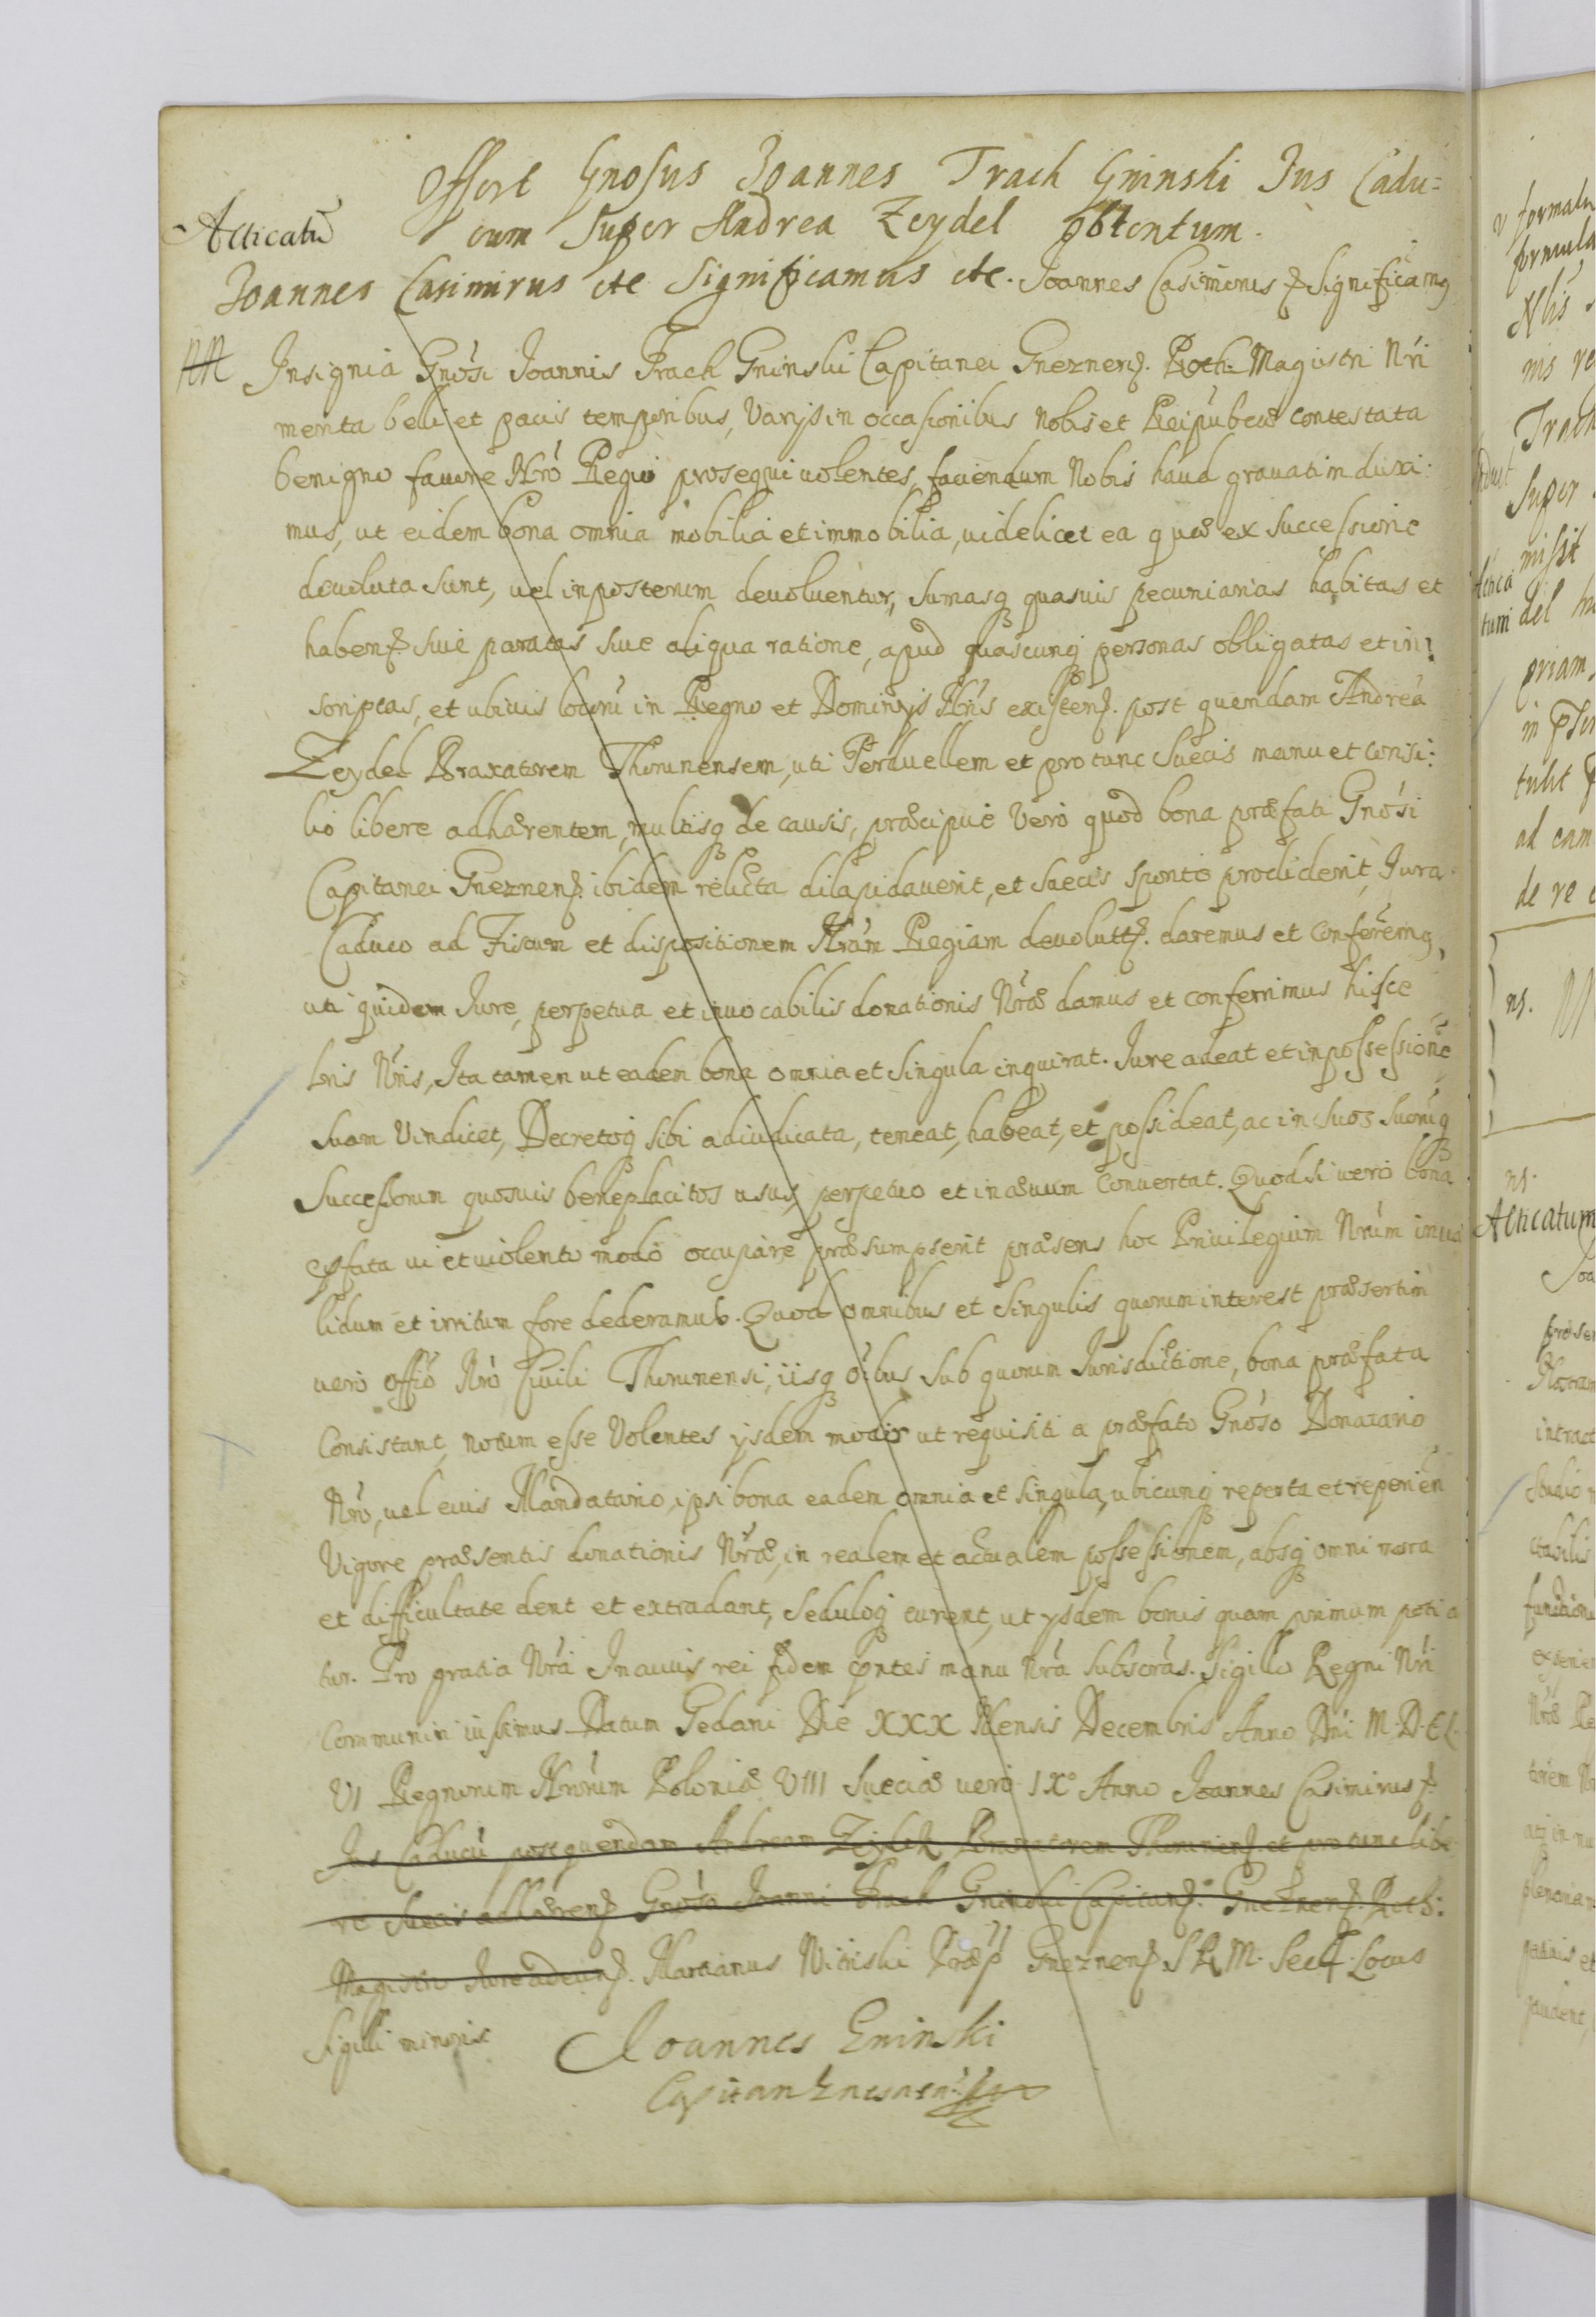 Offert Gnosus Joannes Trach Gninski Jus Cadu=
Acticatu
cum Super Andrea Zeydel obtentum.
Joannes Casimirus etc Significamus etc. Joannes Casimirus Significamq
Insignia Gnosi Joannis Trach Gninski Capitanei Gneznens. Roth. Magistri Nri
merita belli et pacis temporibus, varijs in occasionibus Nobis et Reipubcae contestata
benigno favore Nro Regio prosequi volentes, faciendum Nobis haud gravatim duxi:
mus, ut eidem bona omnia mobilia et immobilia, videlicet ea quae ex Successione
devoluta sunt, vel inposterum devolventur, Sumasq quasvis pecuniarias habitas et
habens sive paratas sive aliqua ratione, apud quascunq personas obligatas et in:
scriptas, et ubivis locoru in Regno et Dominijs Nris existens. post quendam Andrea
Zeydel Braxatorem Thorunensem, uti Perduellem et pro tunc Suecis manu et consi:
lio libere adhaerentem, multisq de causis, praecipue vero quod bona praefati Gnosi
Capitanei Gneznens. ibidem relicta dilapidaverit, et Suecis sponte prodiderit, Jura
Caduco ad Fiscum et dispositionem Nram Regiam devoluta. daremus et Conferemq,
uti quidem Jure, perpetua et irrevocabilis donationis Nrae damus et conferrimus hisce
lris Nris, Ita tamen ut eadem bona omnia et Singula inquirat. Jure adeat et in possessione
Suam Vindicet, Decretoq Sibi adiudicata, teneat, habeat, et possideat, ac in Suos Suoruq
Successorum quosvis beneplacitos usus, perpetuo et in aevum Convertat. Quod si vero bona
pfata vi et violento modo occupare praesumpserit praesens hoc Privilegium Nrum inva
lidum et irritum fore dederamus. Quod omnibus et Singulis quorum interest praesertim
vero offio Nro Civili Thorunensi, iisq oibus Sub quorum Jurisdictione, bona praefata
Consistunt, notum esse Volentes ijsdem modis ut requisiti a praefato Gnoso Donatario
Nro, vel eius Mandatario, ipsi bona eadem omnia et Singula, ubicunq reperta et reperien
Vigore praesentis donationis Nrae, in realem et actualem possessionem, absq omni mora
et difficultate dent et extradant, Seduloq curent, ut ijsdem bonis quam primum potia
tur. Pro gratia Nra In cuius rei fidem pntes manu Nra Subscras. Sigillo Regni Nri
Communiri iussimus Datum Gedani Die XXX Mensis Decembris Anno Dni M.D.C.L.
VI Regnorum Nrorum Poloniae VIII Sueciae vero IXo Anno Joannes Casimirus
Jus Caducu post quendam Andream Zeydel Braxatorem Thorunens. et pro tunc libe
re Suecis adhaerens Gnoso Joanni Trach Gninski Capitans. Gneznens. Roth:
Magistro Jure adeuns. Martianus Witiski Praep Gneznens S R M. Sec. Locus
Sigilli minoris
Joannes Gninski
Capitan